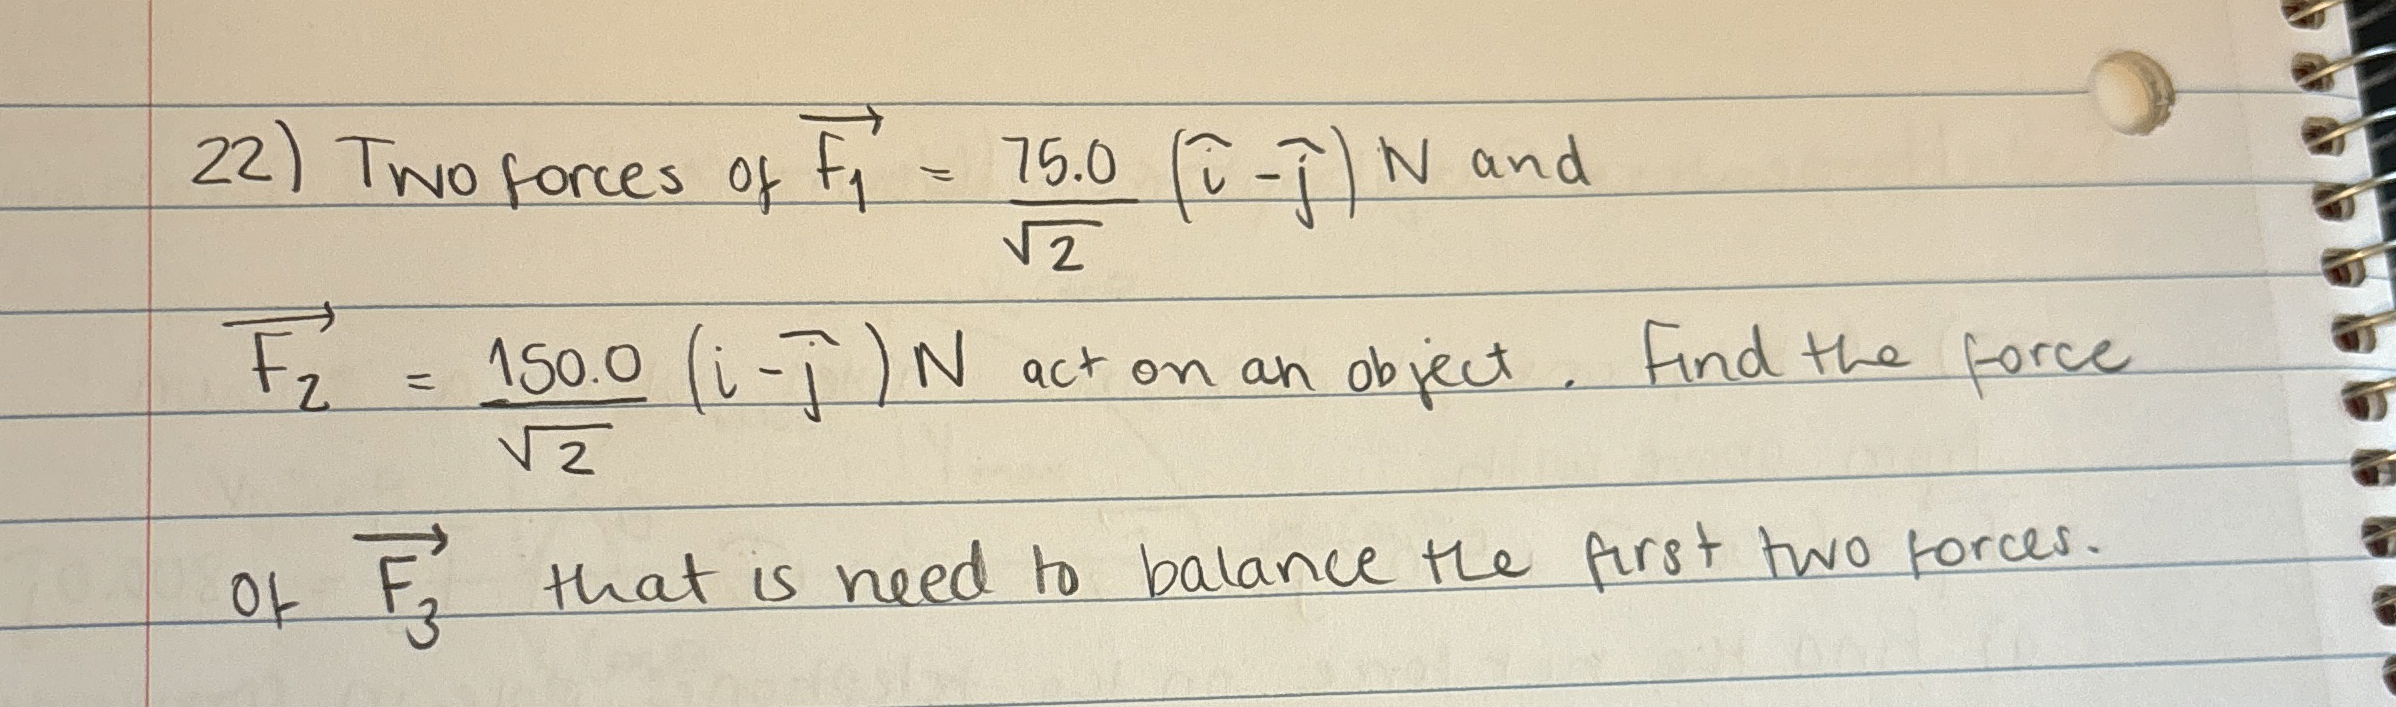 22) Two forces of $\overrightarrow{F_1} = \frac{75.0}{\sqrt{2}} (\hat{i} - \hat{j})$ N and
$\overrightarrow{F_2} = \frac{150.0}{\sqrt{2}} (i - \hat{j})$ N act on an object. Find the force
of $\overrightarrow{F_3}$ that is need to balance the first two forces.